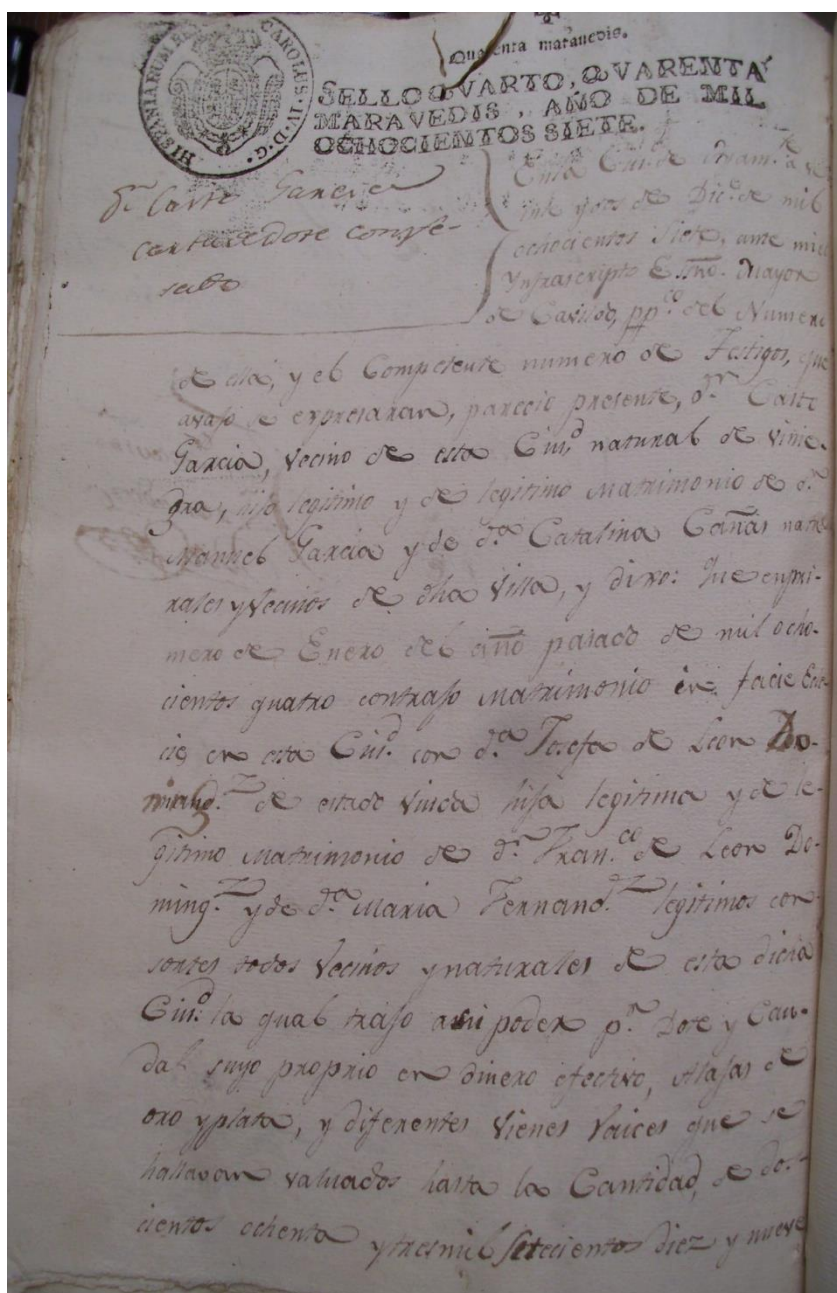 Quarenta maravedis.
HISPANIARUM REX CAROLUS·IV·D·G·
SELLO QVARTO, QVARENTA
MARAVEDIS, AÑO DE MIL
OCHOCIENTOS SIETE.
Dn. Casto Garcia
carta de dote confe-
sado
En la Ciud. de
inte y dos de Dice. de mil
ochocientos siete, ante mi el
Ynfrascripto Essno. Mayor
de Cavildo, ppco. del Numero
de ella, y el Competente numero de Testigos, que
avajo se expresaran, parecio presente, dn. Casto
Garcia, vecino de esta Ciud. natural de Vinie-
gra, hijo legitimo y de legitimo Matrimonio de dn.
Manuel Garcia y de da. Catalina Cañas natu-
rales y Vecinos de dha Villa, y dixo: Que en pri-
mero de Enero del año pasado de mil ocho-
cientos quatro contrajo Matrimonio in facie Ecle-
cie en esta Ciud. con da. Josefa de Leon Do-
mingz. de estado Viuda hija legitima y de le-
gitimo Matrimonio de dn. Franco. de Leon Do-
mingz. y de da. Maria Fernandz. legitimos con-
sortes todos Vecinos y naturales de esta dicha
Ciud. la qual trajo a su poder pr. Dote y Cau-
dal suyo proprio en dinero efectivo, Alajas de
oro y plata, y diferentes Vienes Raices que se
hallavan valuados hasta la Cantidad, de dos-
cientos ochenta y tres mil setecientos diez y nueve